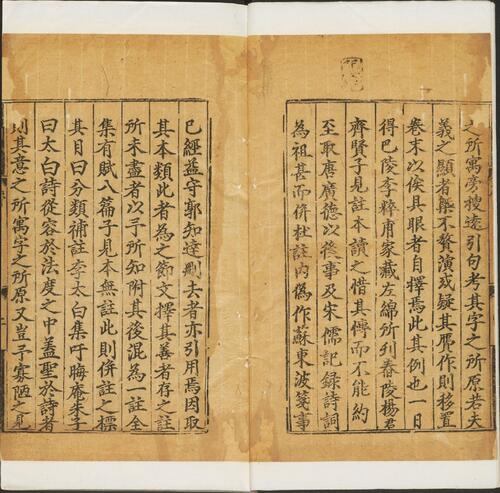 之所寓旁搜遠引句考其字之所原若夫
義之顯者槩不贅演或疑其贋作則移置
卷末以俟具眼者自擇焉此其例也一日
得巴陵李粹甫家藏左綿所刊舂陵楊君
齊賢子見註本讀之惜其博而不能約
至取唐廣德以後事及宋儒記録詩詞
為祖甚而併杜註內偽作蘇東波箋事
已經益守郭知達刪去者亦引用焉因取
其本類此者為之節文擇其善者存之註
所未盡者以予所知附其後混為一註全
集有賦八篇子見本無註此則併註之標
其目曰分類補註李太白集吁晦庵朱子
曰太白詩從容於法度之中蓋聖於詩者
則其意之所寓字之所原又豈予寡陋之見